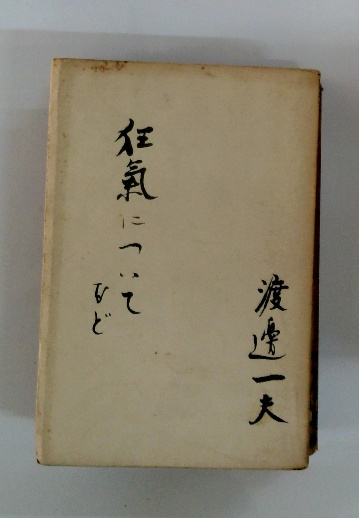 渡邊一夫
狂氣について
など